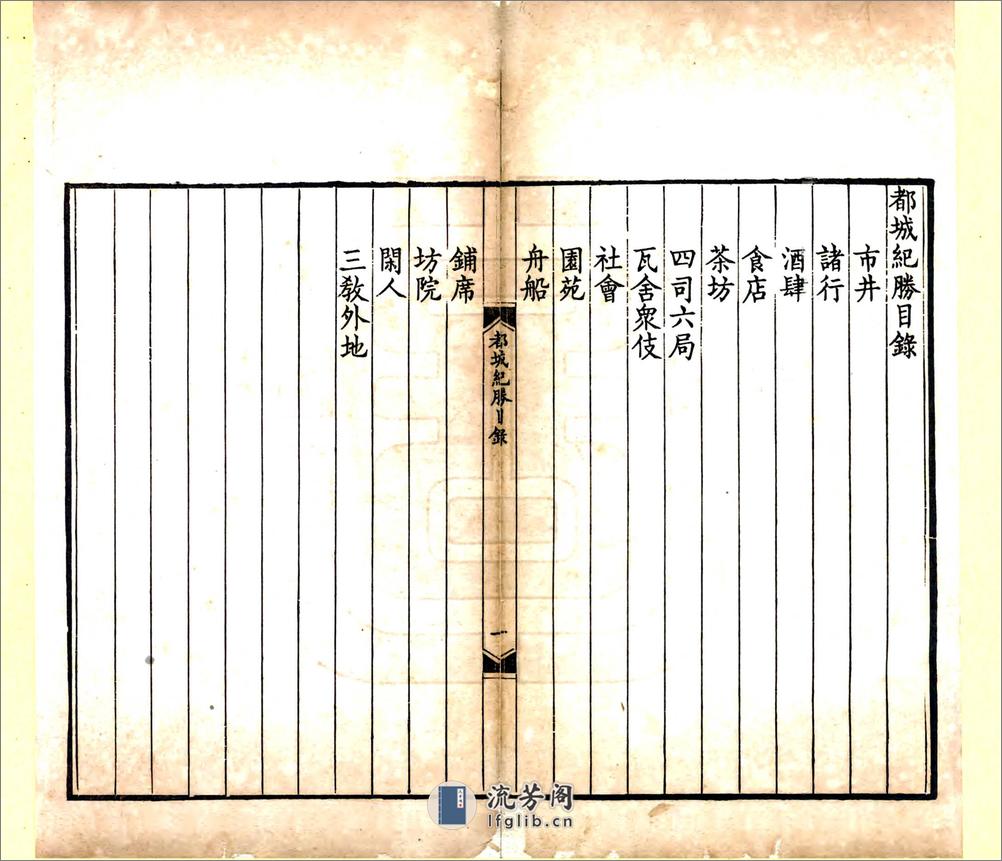 都城紀勝目錄
市井
諸行
酒肆
食店
茶坊
四司六局
瓦舍衆伎
社會
園苑
舟船
都城紀勝目錄
一
鋪席
坊院
閑人
三敎外地
流芳阁
lfglib.cn